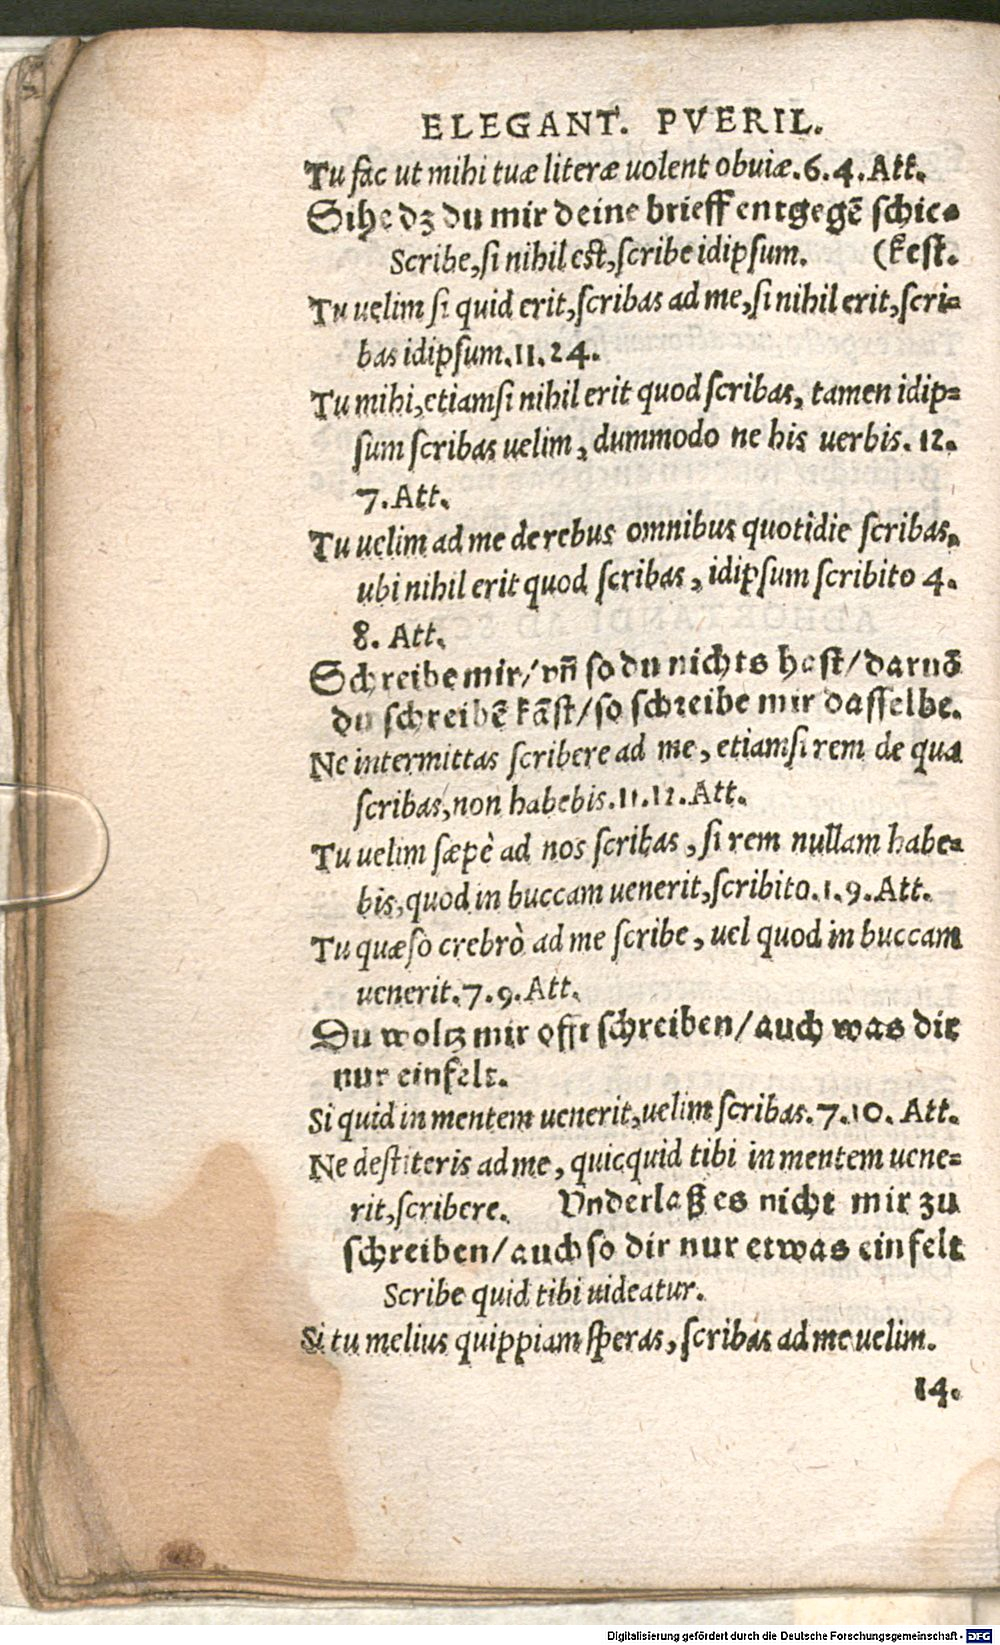 ELEGANT. PVERIL.
Tu fac ut mihi tuæ literæ uolent obuiæ.6.4.Att.
Sihe dz du mir deine brieff entgegẽ schic⸗
Scribe,si nihil est,scribe idipsum. (kest.
Tu uelim si quid erit,scribas ad me,si nihil erit,scri⸗
bas idipsum.11.24.
Tu mihi,etiamsi nihil erit quod scribas, tamen idip⸗
sum scribas uelim, dummodo ne his uerbis. 12.
7.Att.
Tu uelim ad me de rebus omnibus quotidie scribas,
ubi nihil erit quod scribas, idipsum scribito 4.
8. Att.
Schreibe mir/ vñ so du nichts hast/ daruõ
du schreibẽ kãst/ so schreibe mir dasselbe.
Ne intermittas scribere ad me, etiamsi rem de qua
scribas,non habebis.11.12.Att.
Tu uelim sæpè ad nos scribas, si rem nullam habe⸗
bis,quod in buccam uenerit,scribito.1.9.Att.
Tu quæso crebrò ad me scribe, uel quod in buccam
uenerit.7.9.Att.
Du woltz mir offt schreiben/ auch was dir
nur einfelt.
Si quid in mentem uenerit,uelim scribas.7.10. Att.
Ne destiteris ad me, quicquid tibi in mentem uene⸗
rit,scribere. Vnderlaß es nicht mir zu
schreiben/ auch so dir nur etwas einfelt
Scribe quid tibi uideatur.
Si tu melius quippiam speras, scribas ad me uelim.
14.
Digitalisierung gefördert durch die Deutsche Forschungsgemeinschaft - DFG